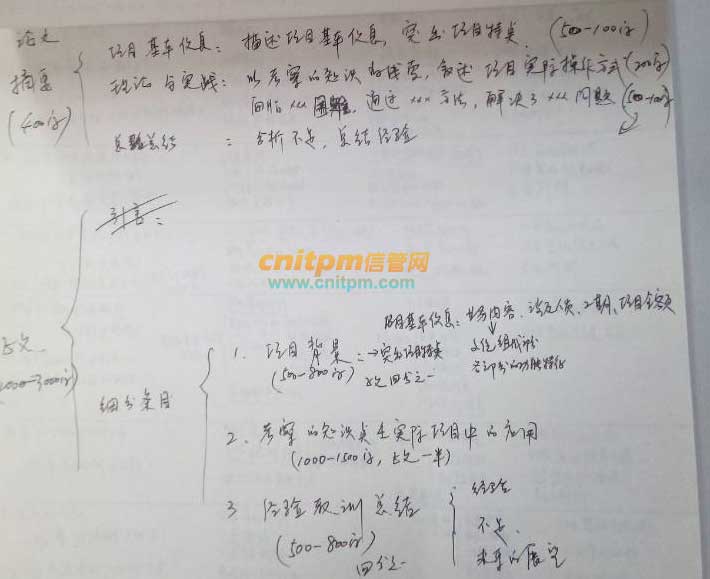 论文
摘要
(400字)
项目基本信息：描述项目基本信息，突出项目特点. (500-100字)
理论与实践：以考察的知识为线索，叙述项目实际操作方式 (200字)
面临xxx困难，通过xxx方法，解决了xxx问题 (500-100字)
总结：分析不足，总结经验
引言：
cnitpm信管网
www.cnitpm.com
正文
2000-3000字)
细分条目
项目基本信息：业务内容、涉及人员、工期、项目金额
1. 项目背景：→突出项目特点
(500-800字) 正文四分之一
文统组成部分
各部分的功能特征
2. 考察的知识点在实际项目中的应用
(1000-1500字，正文一半)
3. 经验教训总结
(500-800字)
四分之一
经验
不足.
未来的展望